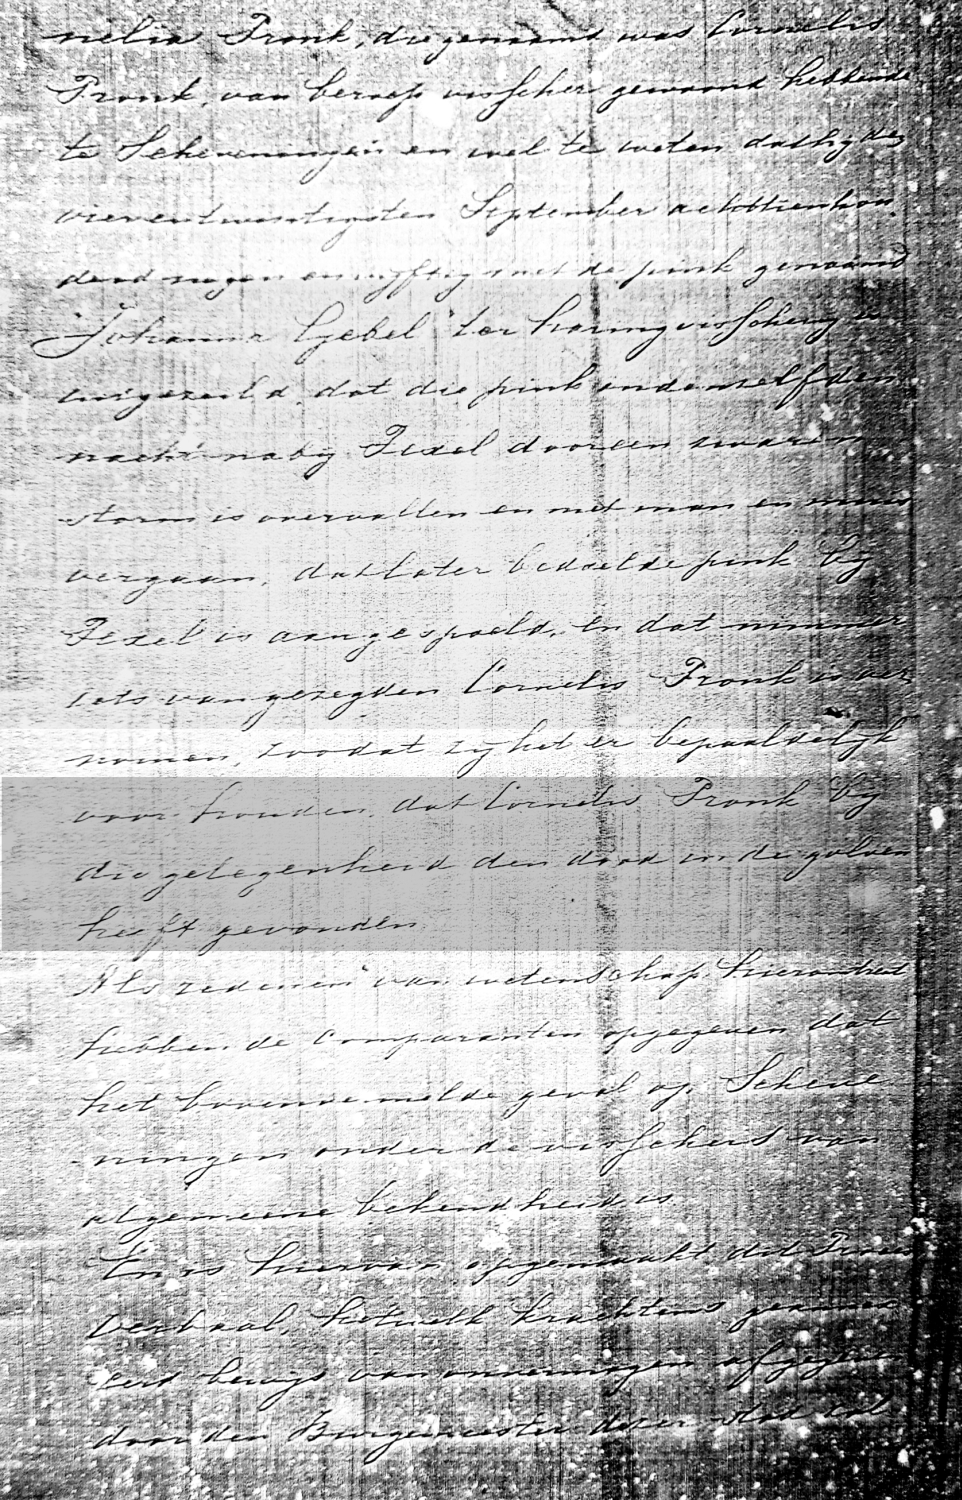 nelia Pronk, die genaamd was Cornelis
Pronk, van beroep visscher gewoond hebbende
te Scheveningen en wel te weten dat hij den
vierentwintigsten September achttienhon
derd negen en vyftig met de pink genaamd
"Johanna Gebel" ter haringvisscherij is
uitgezeild, dat die pink in denzelfden
nacht naby Texel door een zwaren
storm is overvallen en met man en muis
vergaan, dat later bedoelde pink by
Texel is aangespoeld, en dat nimmer
iets van gezegden Cornelis Pronk is ver
nomen, zoodat zy het er bepaaldelyk
voor houden, dat Cornelis Pronk by
die gelegenheid den dood in de golven
heeft gevonden
Als redenen van wetenschap hieromtrent
hebben de Comparanten opgegeven dat
het bovenvermelde geval op Scheve
ningen onder de visschers van
algemeene bekendheid is
En is hiervan opgemaakt dit Proces
Verbaal, hetwelk krachtens
bewys van onvermogen afgegeven
door den Burgemeester dezer stad zal